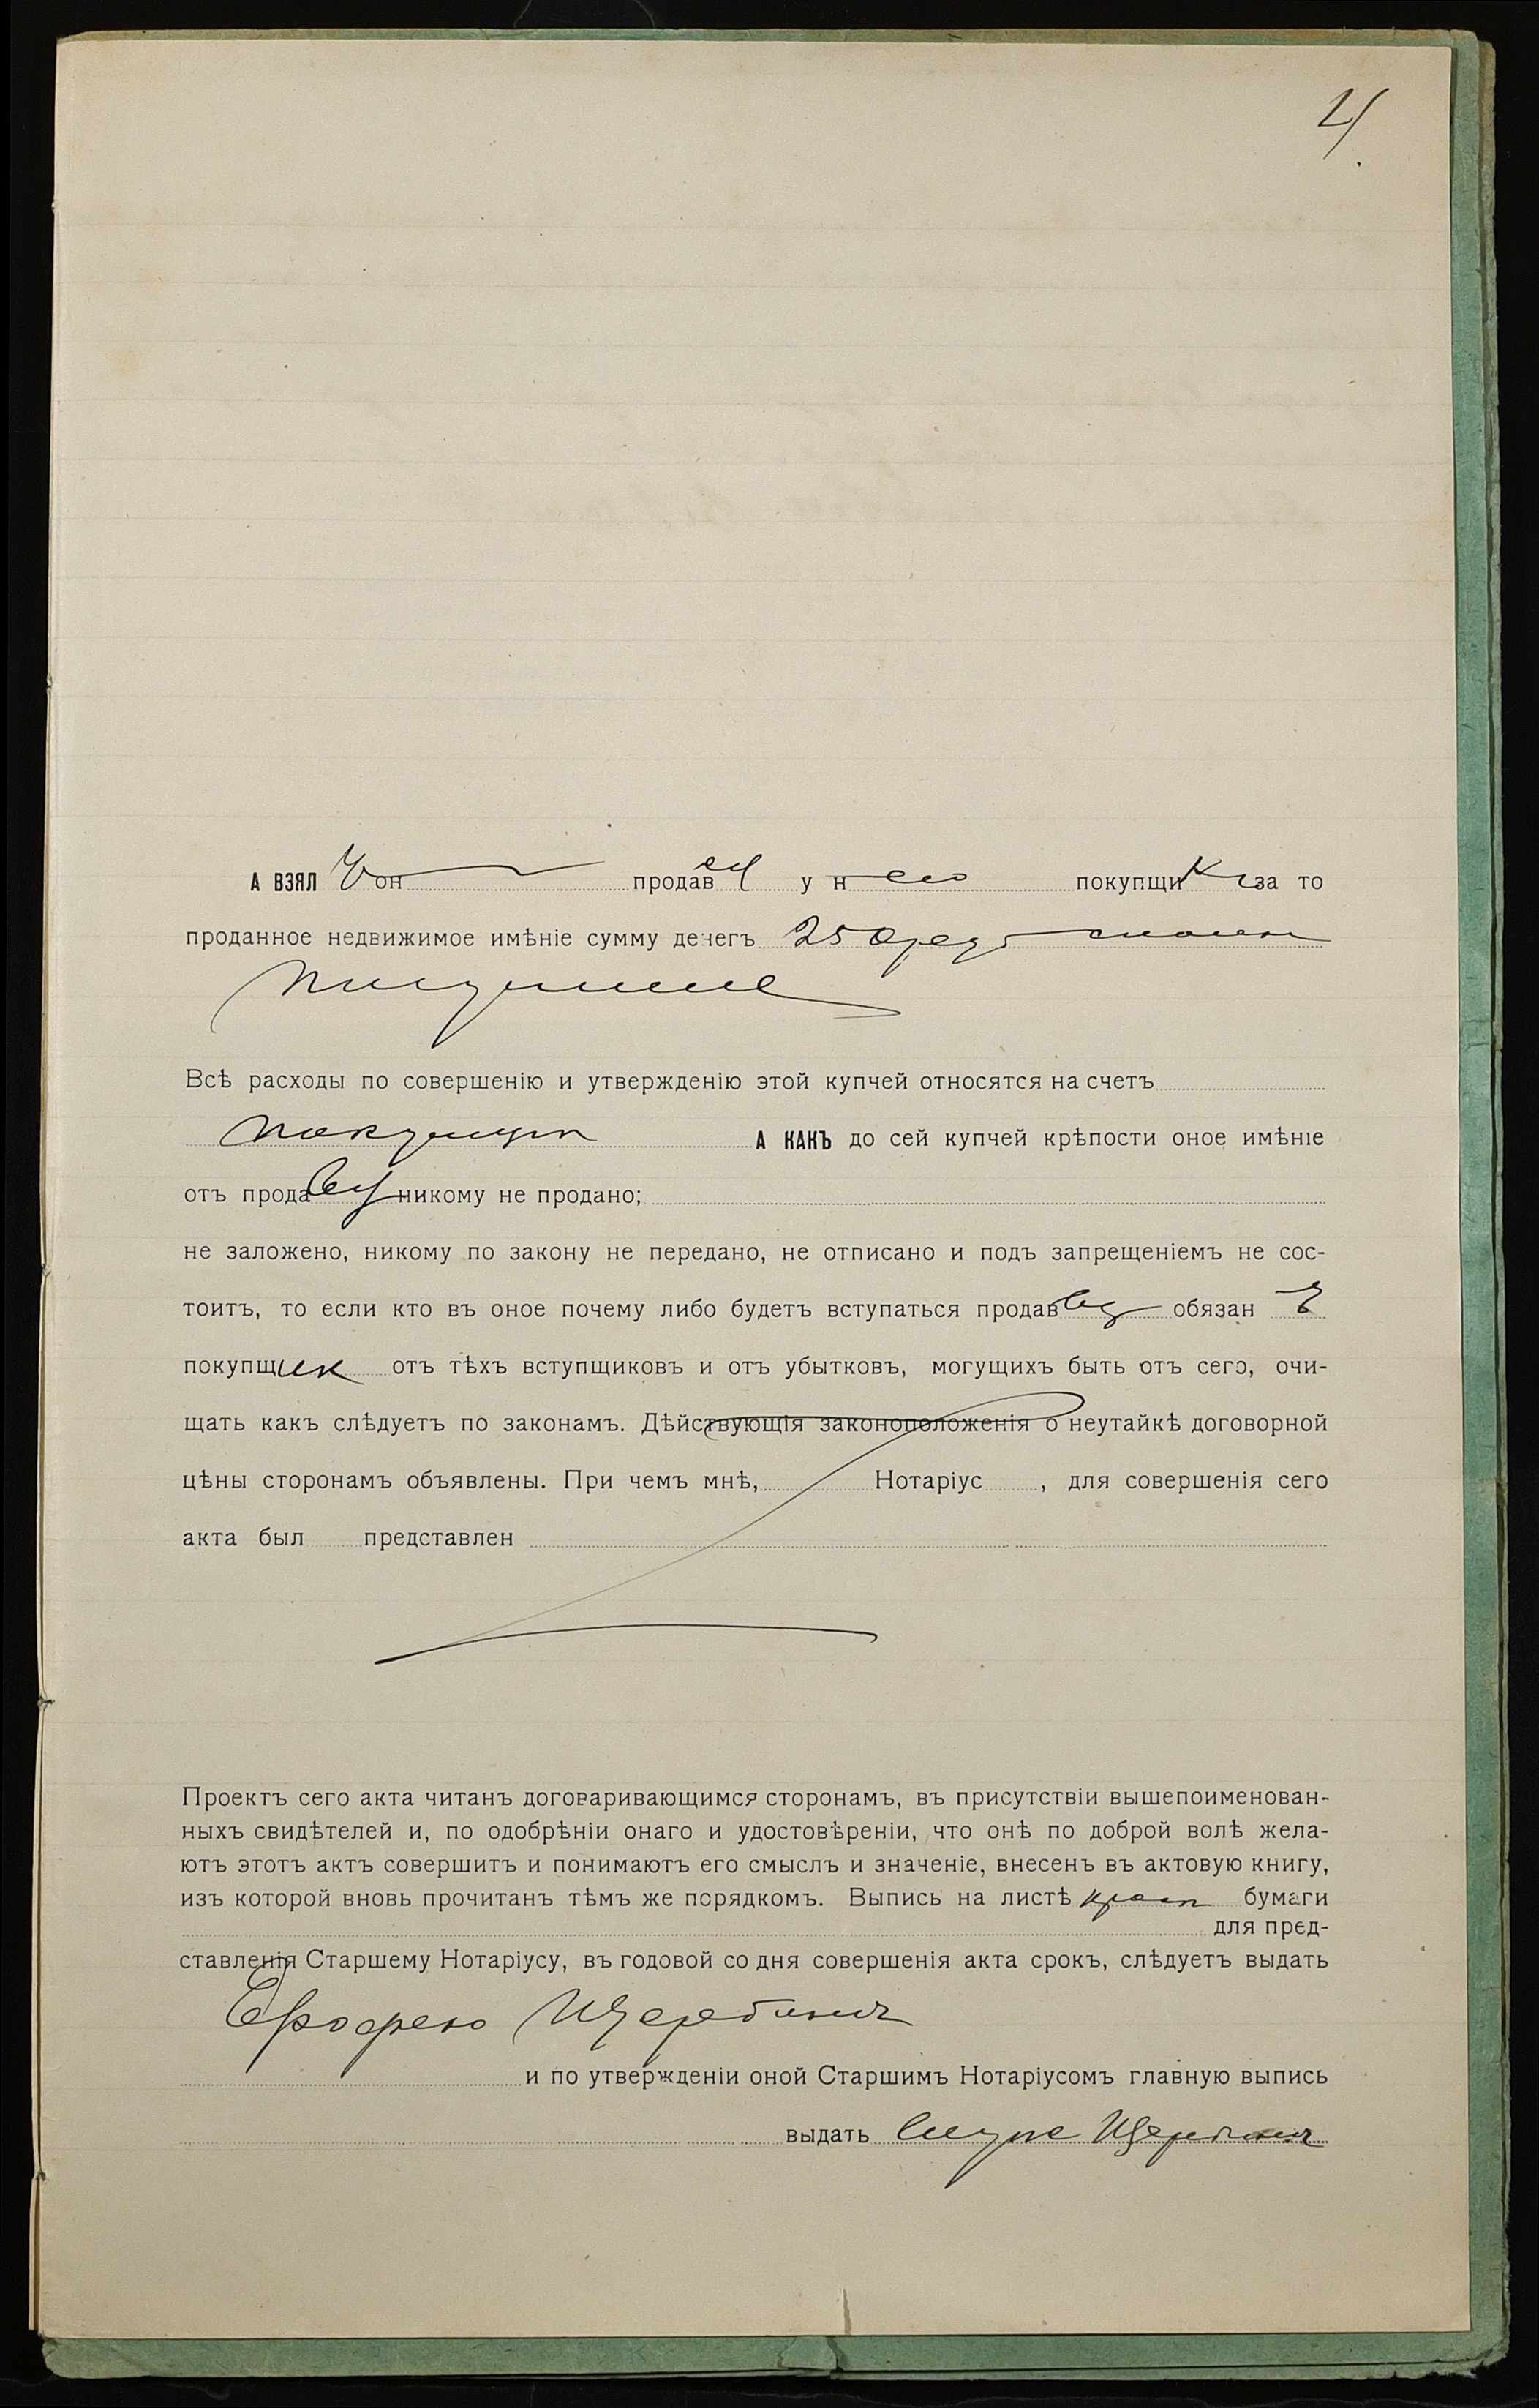 4
А ВЗЯЛ он продавец у него покупщика за то
проданное недвижимое имѣніе сумму денегъ 250 руб
Всѣ расходы по совершенію и утвержденію этой купчей относятся на счетъ
покупщика А КАКЪ до сей купчей крѣпости оное имѣніе
отъ продавца никому не продано;
не заложено, никому по закону не передано, не отписано и подъ запрещеніемъ не сос-
тоитъ, то если кто въ оное почему либо будетъ вступаться продавец обязан
покупщик отъ тѣхъ вступщиковъ и отъ убытковъ, могущихъ быть отъ сего, очи-
щать какъ слѣдуетъ по законамъ. Дѣйствующія законоположенія о неутайкѣ договорной
цѣны сторонамъ объявлены. При чемъ мнѣ, Нотаріус , для совершенія сего
акта был представлен
Проектъ сего акта читанъ договаривающимся сторонамъ, въ присутствіи вышепоименован-
ныхъ свидѣтелей и, по одобрѣніи онаго и удостовѣреніи, что онѣ по доброй волѣ жела-
ютъ этотъ актъ совершить и понимаютъ его смыслъ и значеніе, внесенъ въ актовую книгу,
изъ которой вновь прочитанъ тѣмъ же порядкомъ. Выпись на листѣ бумаги
для пред-
ставленія Старшему Нотаріусу, въ годовой со дня совершенія акта срокъ, слѣдуетъ выдать
и по утвержденіи оной Старшимъ Нотаріусомъ главную выпись
выдать